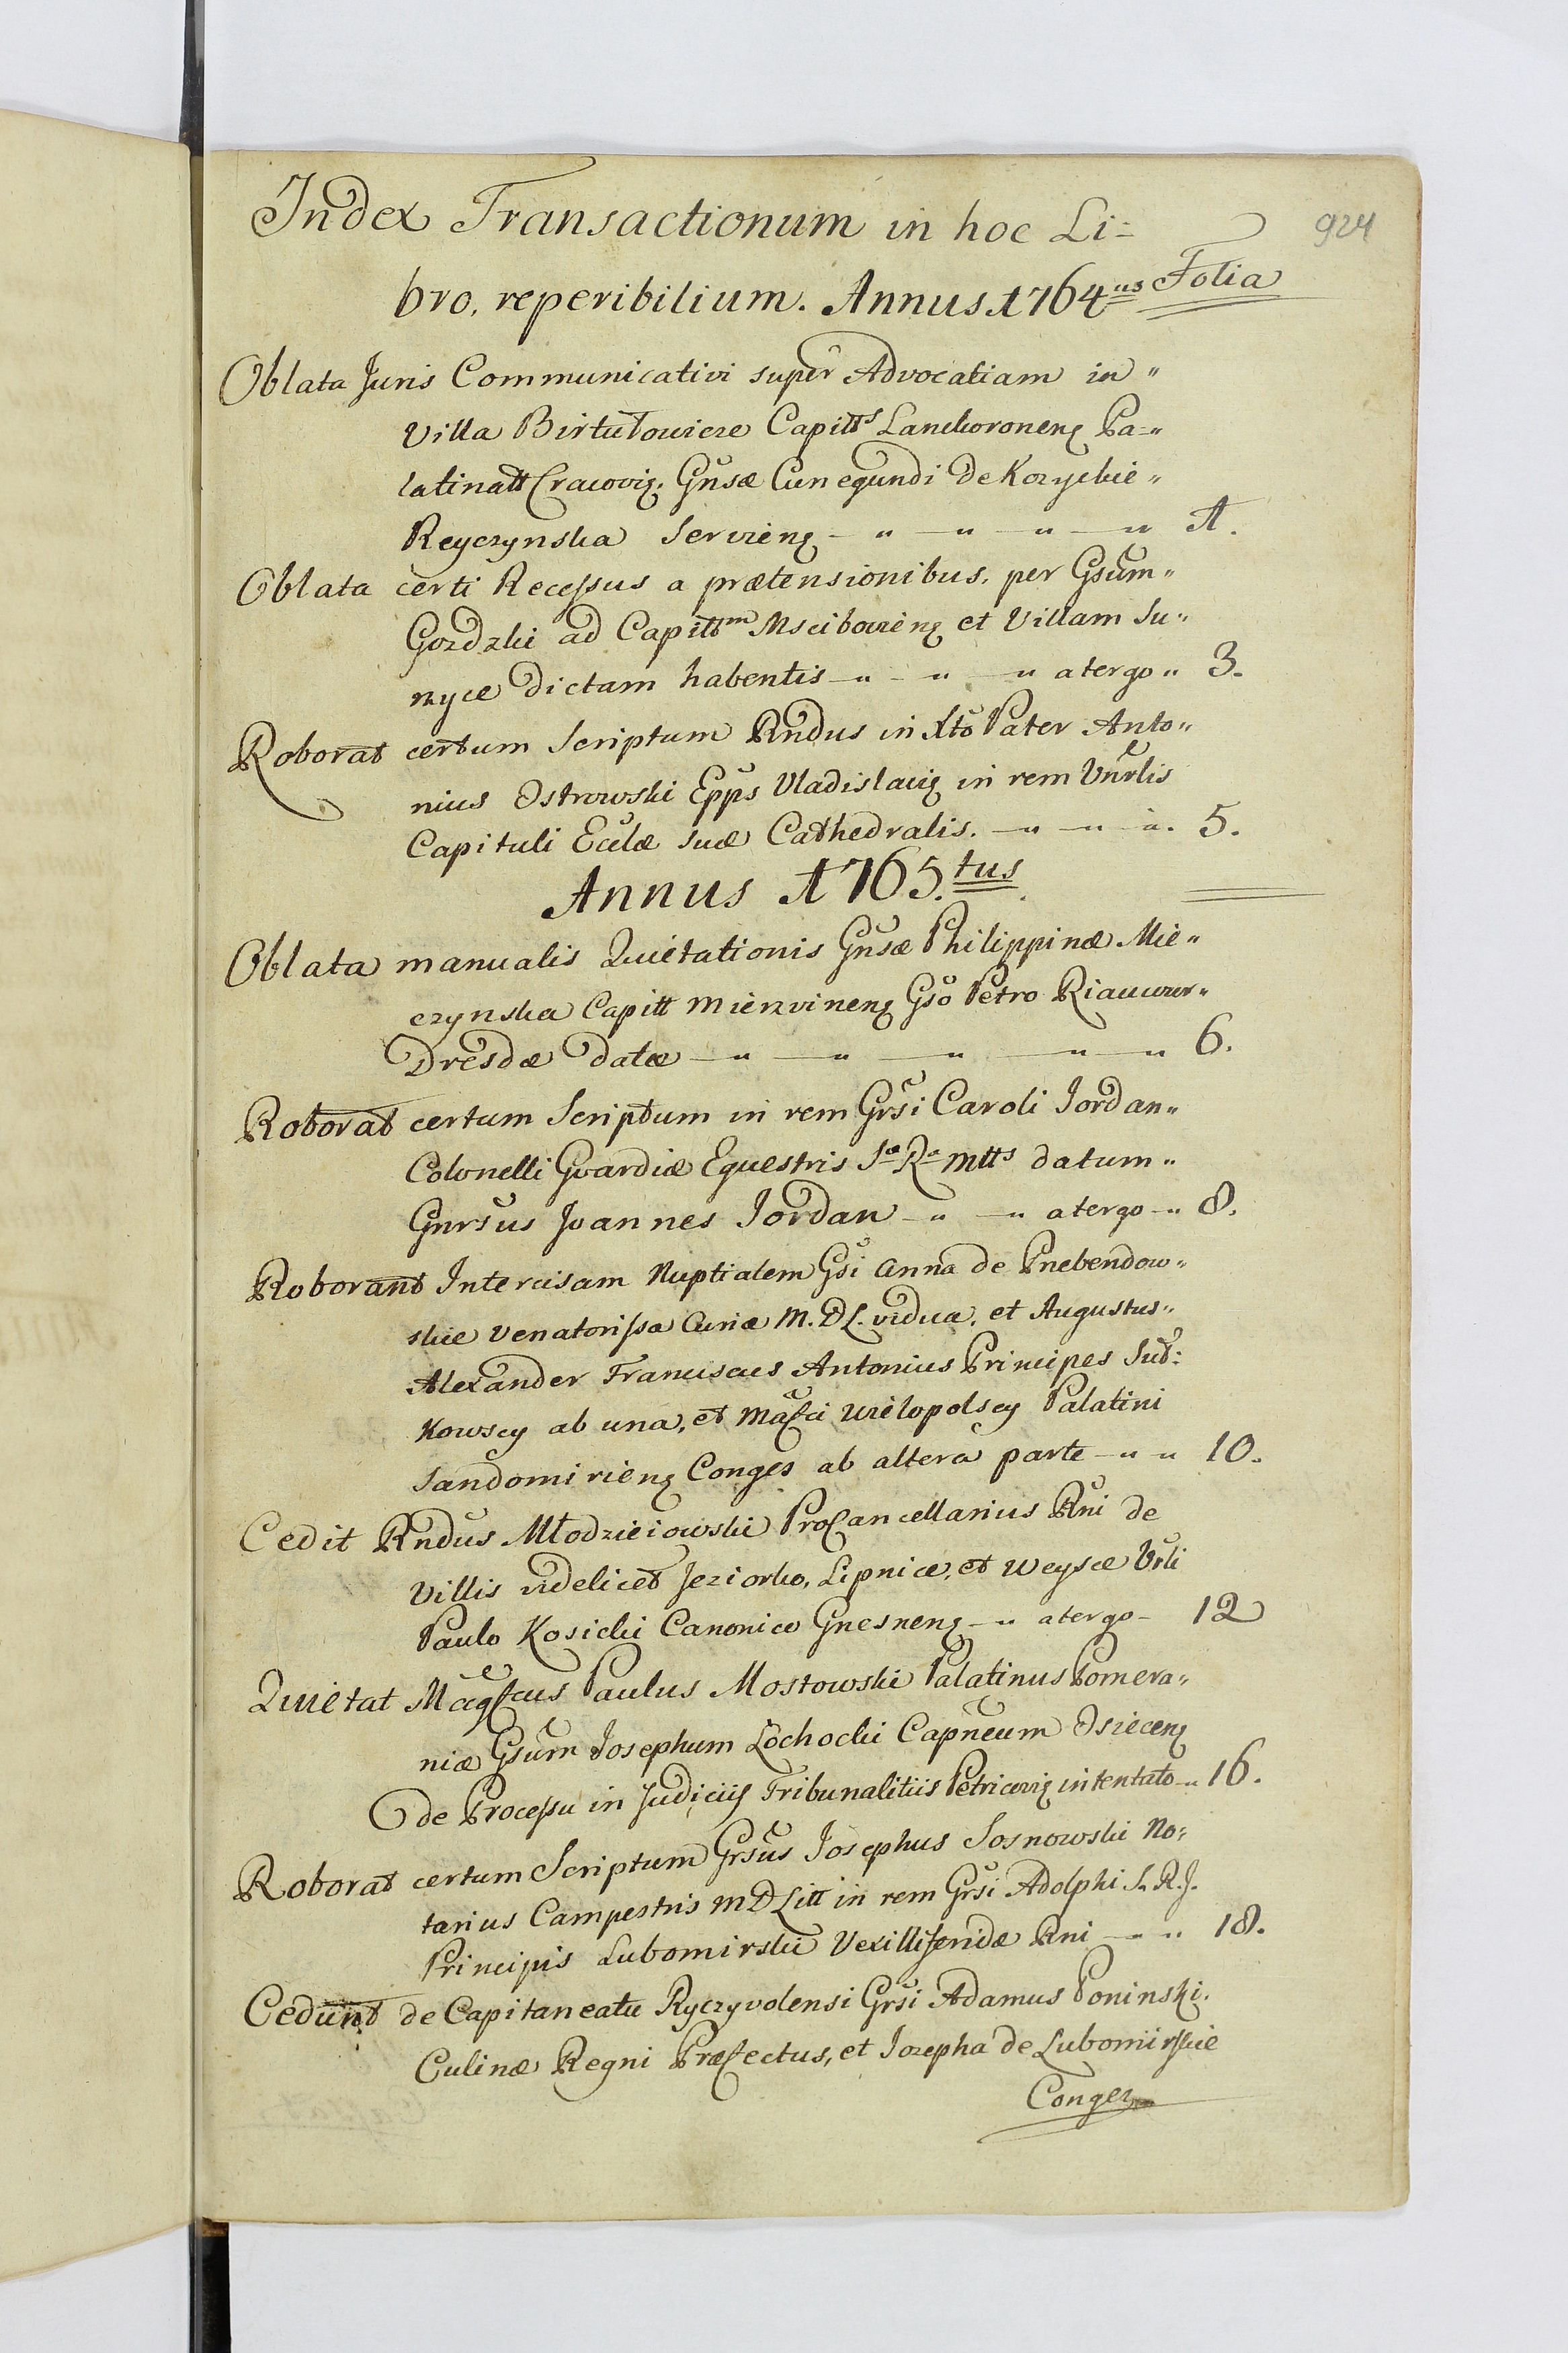 924
Index Transactionum in hoc Li=
bro, reperibilium. Annus 1764us Folia
Oblata Juris Communicativi super Advocatiam in "
Villa Birtułowicze Capitts Lanckoronens Pa="
latinatt Cracovis. Gnsæ Cunegundi de Kozyckie "
Reyczynska Serviens - " - " - " - " 1.
Oblata certi Recessus a prætensionibus, per Gsum "
Gozdzki ad Capittm Mscibowiens et Villam Su "
myce dictam habentis - " - " - " atergo " 3.
Roborat certum Scriptum Rndus in Xto Pater Anto "
nius Ostrowski Epps Vladislavis in rem Vnrlis
Capituli Eclæ suæ Cathedralis. - " - " - a. 5.
Annus 1765.tus
Oblata manualis Quietationis Gnsæ Philippinæ Mie "
czynska Capitt Mierzvinens Gso Petro Riaucour "
Dresdæ datæ - " - " - " - " - " 6.
Roborat certum Scriptum in rem Grsi Caroli Jordan "
Colonelli Gvardiæ Equestris Sa Ra Mtts datum "
Gnrsus Joannes Jordan - " - " atergo - " 8.
Roborant Intercisam Nuptialem Gsi Anna de Prebendow "
skie Venatorissa Curiæ M. D L. vidua, et Augustus "
Alexander Franciscus Antonius Principes Suł:
kowscy ab una, et Magci Wielopolscy Palatini
Sandomiriens Conges ab altera parte - " " 10.
Cedit Rndus Młodzieiowski ProCancellarius Rni de
Villis videlicet Jeziorko, Lipnice, et Weysce Vrli
Paulo Kosicki Canonico Gnesnens - " atergo - 12
Quietat Magfcus Paulus Mostowski Palatinus Pomera "
niæ Gsum Josephum Łochocki Capneum Osiecens
de Processu in Judiciis Tribunalitiis Petricovis intentato - " 16.
Roborat certum Scriptum Grsus Josephus Sosnowski No:
tarius Campestris M D Litt in rem Grsi Adolphi S. R. J.
Principis Lubomirski Vexilliferidæ Rni - " " 18.
Cedunt de Capitaneatu Ryczyvolensi Grsi Adamus Poninski.
Culinæ Regni Præfectus, et Jozepha de Lubomirskie
Conges